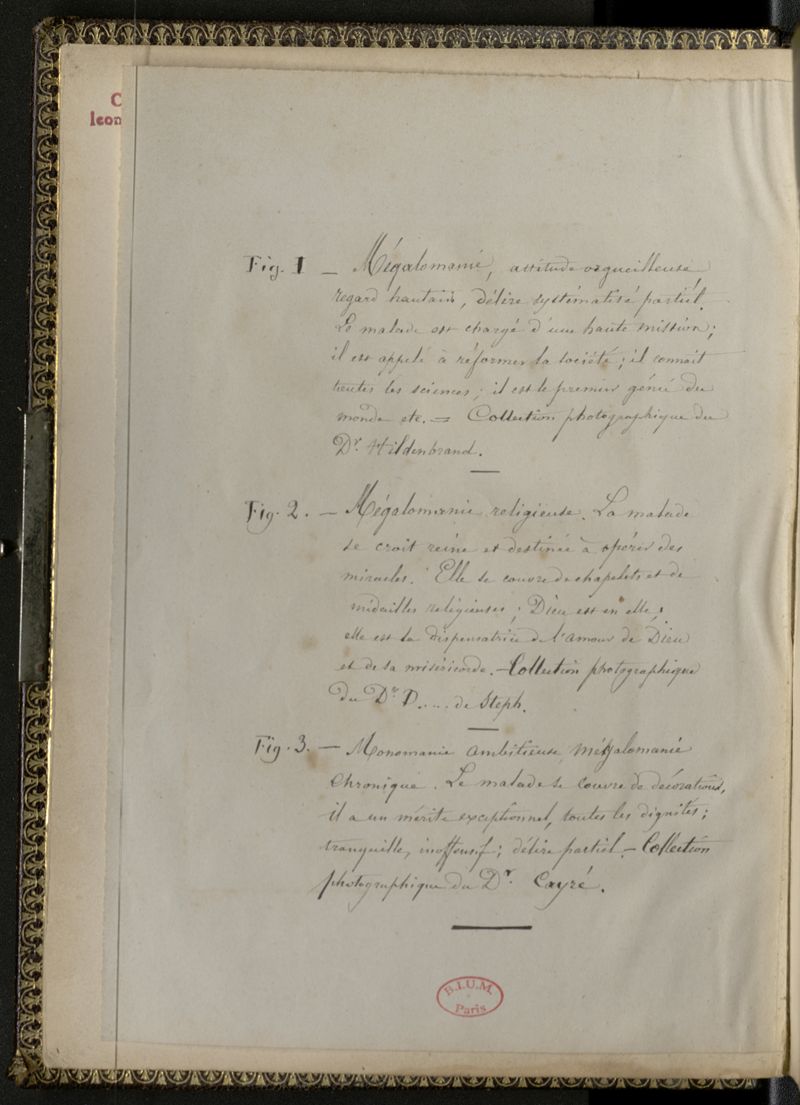 C
leon
Fig. 1 – Mégalomanie, attitude orgueilleuse,
regard hautain, délire systématisé partiel.
Le malade est chargé d'une haute mission;
il est appelé à réformer la société; il connait
toutes les sciences; il est le premier génie du
monde etc. = Collection photographique du
Dr. Hildenbrand.
Fig. 2. – Mégalomanie religieuse. La malade
se croit reine et destinée à opérer des
miracles. Elle se couvre de chapelets et de
médailles religieuses; Dieu est en elle;
elle est la dispensatrice de l'amour de Dieu
et de sa miséricorde. – Collection photographique
du Dr. D.... de Steph.
Fig. 3. – Monomanie ambitieuse, mégalomanie
chronique. Le malade se couvre de décorations,
il a un mérite exceptionnel, toutes les dignités;
tranquille, inoffensif; délire partiel. – Collection
photographique du Dr. Cayré.
B.I.U.M.
Paris